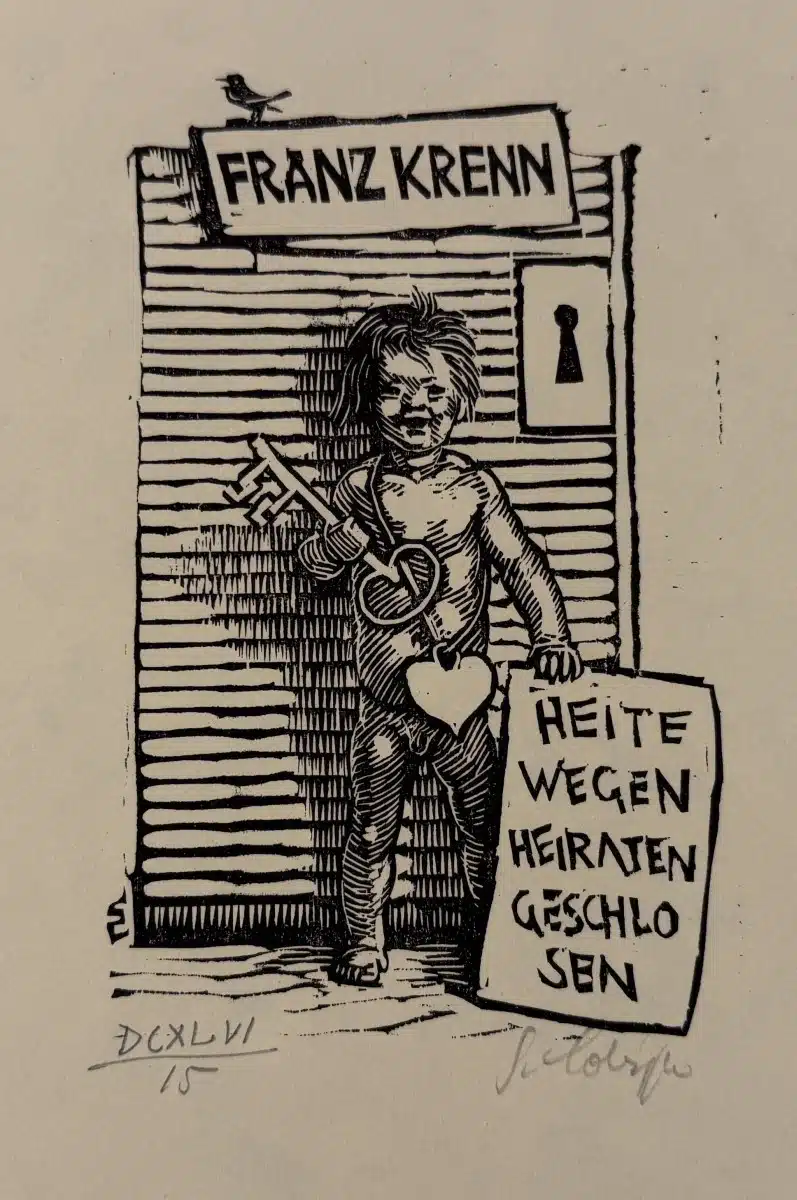 FRANZ KRENN
HEITE
WEGEN
HEIRATEN
GESCHLO
SEN
DCXLVI
15